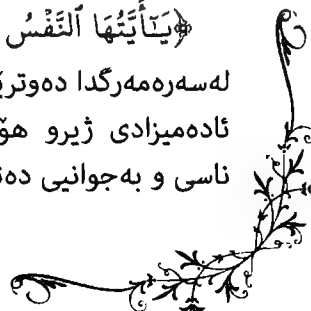 ﴿يَـٰٓأَيَّتُهَا ٱلنَّفْسُ
لەسەرەمەرگدا دەوترێ
ئادەمیزادی ژیرو هۆ
ناسی و بەجوانیی دەن